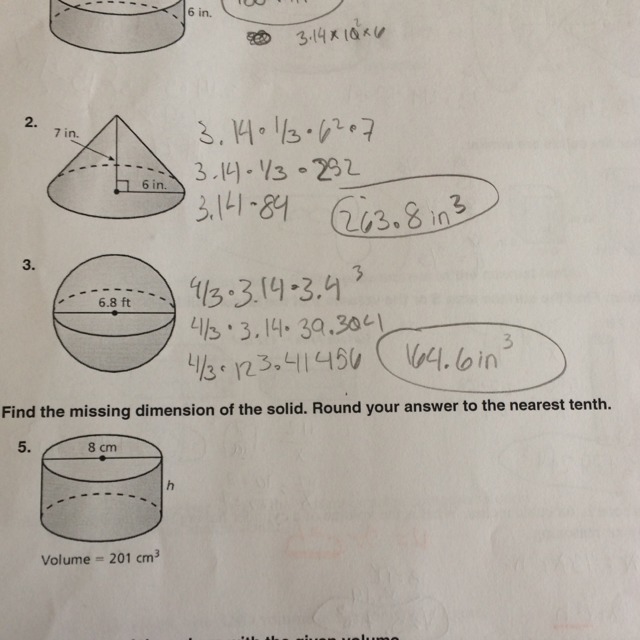 6 in.
3.14 × 10² × 6
2.
7 in.
6 in.
3.14 · 1/3 · 6² · 7
3.14 · 1/3 · 252
3.14 · 84
263.8 in³
3.
6.8 ft
4/3 · 3.14 · 3.4³
4/3 · 3.14 · 39.304
4/3 · 123.41456
164.6 in³
Find the missing dimension of the solid. Round your answer to the nearest tenth.
5.
8 cm
h
Volume = 201 cm³
with the given volume